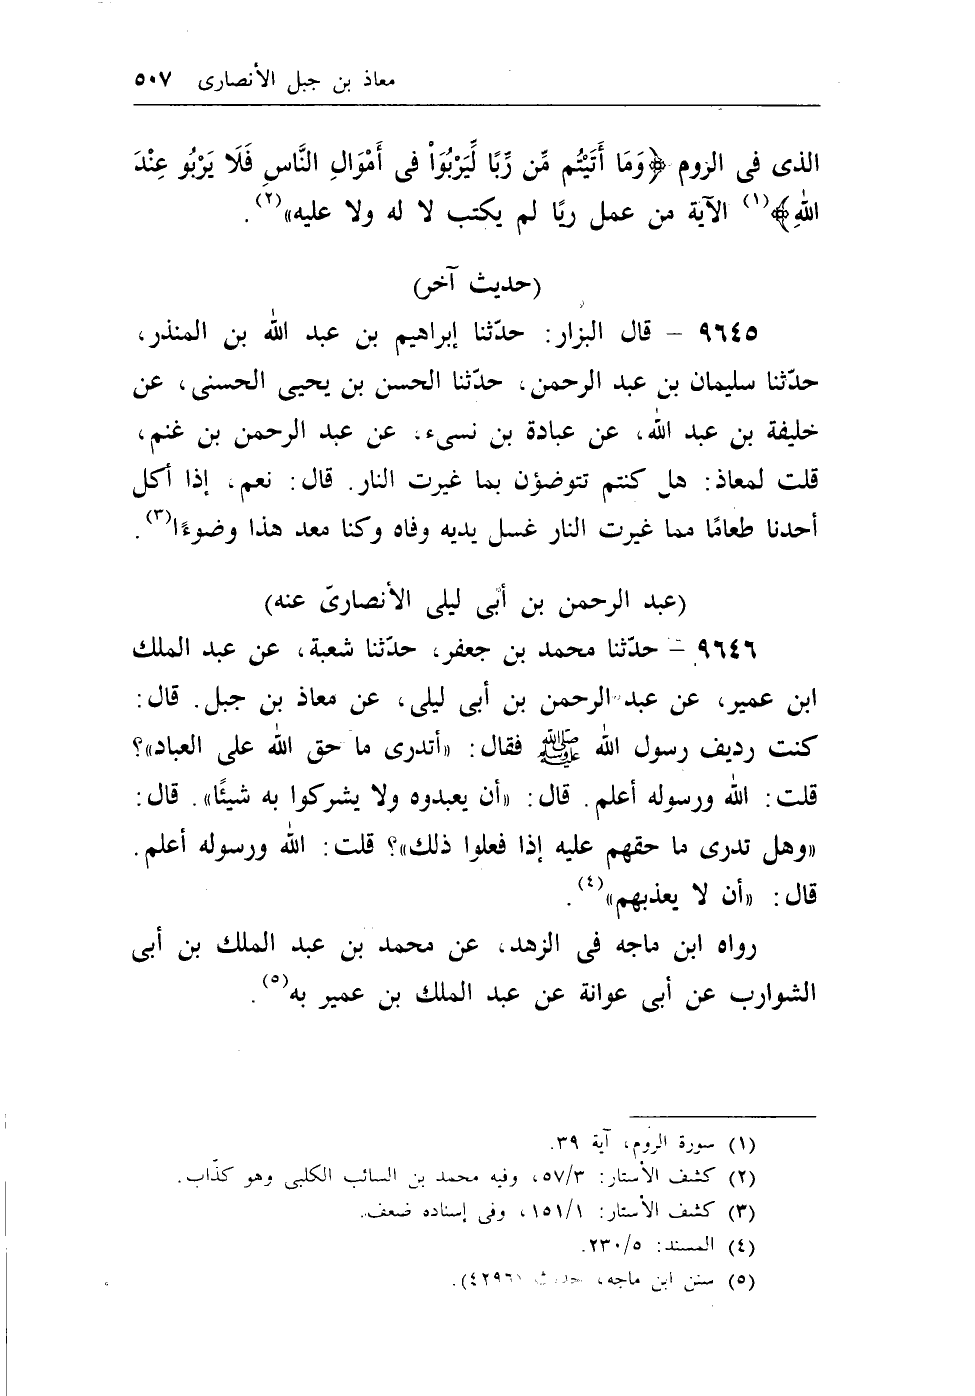 معاذ بن جبل الأنصارى ٥٠٧
الذى فى الروم ﴿وَمَا أَتَيْتُم مِّن رِّبًا لِّيَرْبُوَاْ فى أَمْوَالِ النَّاسِ فَلَا يَرْبُو عِنْدَ
اللهِ﴾(١) الآية من عمل ربًا لم يكتب لا له ولا عليه»(٢).
(حديث آخر)
٩٦٤٥ – قال البزار: حدّثنا إبراهيم بن عبد الله بن المنذر،
حدّثنا سليمان بن عبد الرحمن، حدّثنا الحسن بن يحيى الحسنى، عن
خليفة بن عبد الله، عن عبادة بن نسىء، عن عبد الرحمن بن غنم،
قلت لمعاذ: هل كنتم تتوضؤن بما غيرت النار. قال: نعم، إذا أكل
أحدنا طعامًا مما غيرت النار غسل يديه وفاه وكنا معد هذا وضوءًا(٣).
(عبد الرحمن بن أبى ليلى الأنصارىّ عنه)
٩٦٤٦ – حدّثنا محمد بن جعفر، حدّثنا شعبة، عن عبد الملك
ابن عمير، عن عبد الرحمن بن أبى ليلى، عن معاذ بن جبل. قال:
كنت رديف رسول الله ﷺ فقال: «أتدرى ما حق الله على العباد»؟
قلت: الله ورسوله أعلم. قال: «أن يعبدوه ولا يشركوا به شيئًا». قال:
«وهل تدرى ما حقهم عليه إذا فعلوا ذلك»؟ قلت: الله ورسوله أعلم.
قال: «أن لا يعذبهم»(٤).
رواه ابن ماجه فى الزهد، عن محمد بن عبد الملك بن أبى
الشوارب عن أبى عوانة عن عبد الملك بن عمير به(٥).
(١) سورة الروم، آية ٣٩.
(٢) كشف الأستار: ٥٧/٣، وفيه محمد بن السائب الكلبى وهو كذّاب.
(٣) كشف الأستار: ١٥١/١، وفى إسناده ضعف.
(٤) المسند: ٢٣٠/٥.
(٥) سنن ابن ماجه، حديث (٤٢٩٦).